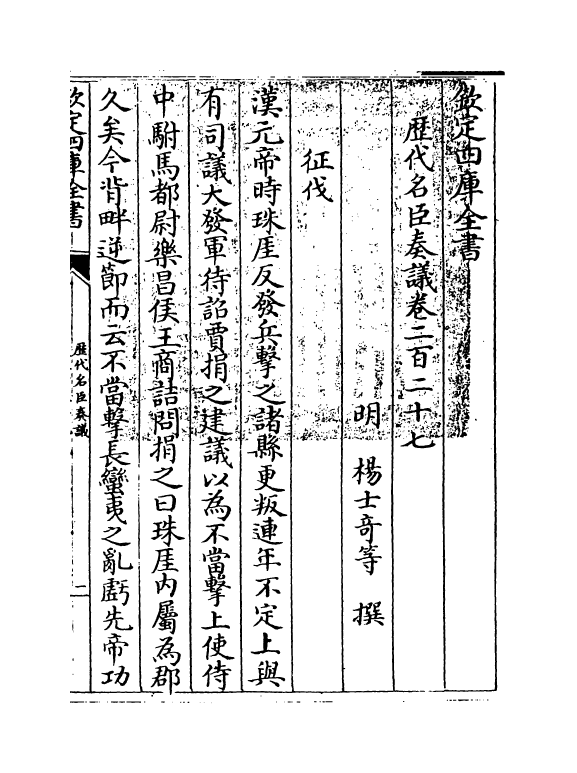 欽定四庫全書
歷代名臣奏議卷二百二十七
明 楊士竒等 撰
征伐
漢元帝時珠厓反發兵擊之諸縣更叛連年不定上與
有司議大發軍待詔賈捐之建議以為不當擊上使侍
中駙馬都尉樂昌侯王商詰問捐之曰珠厓内屬為郡
久矣今背畔逆節而云不當擊長蠻夷之亂虧先帝功
欽定四庫全書
歷代名臣奏議